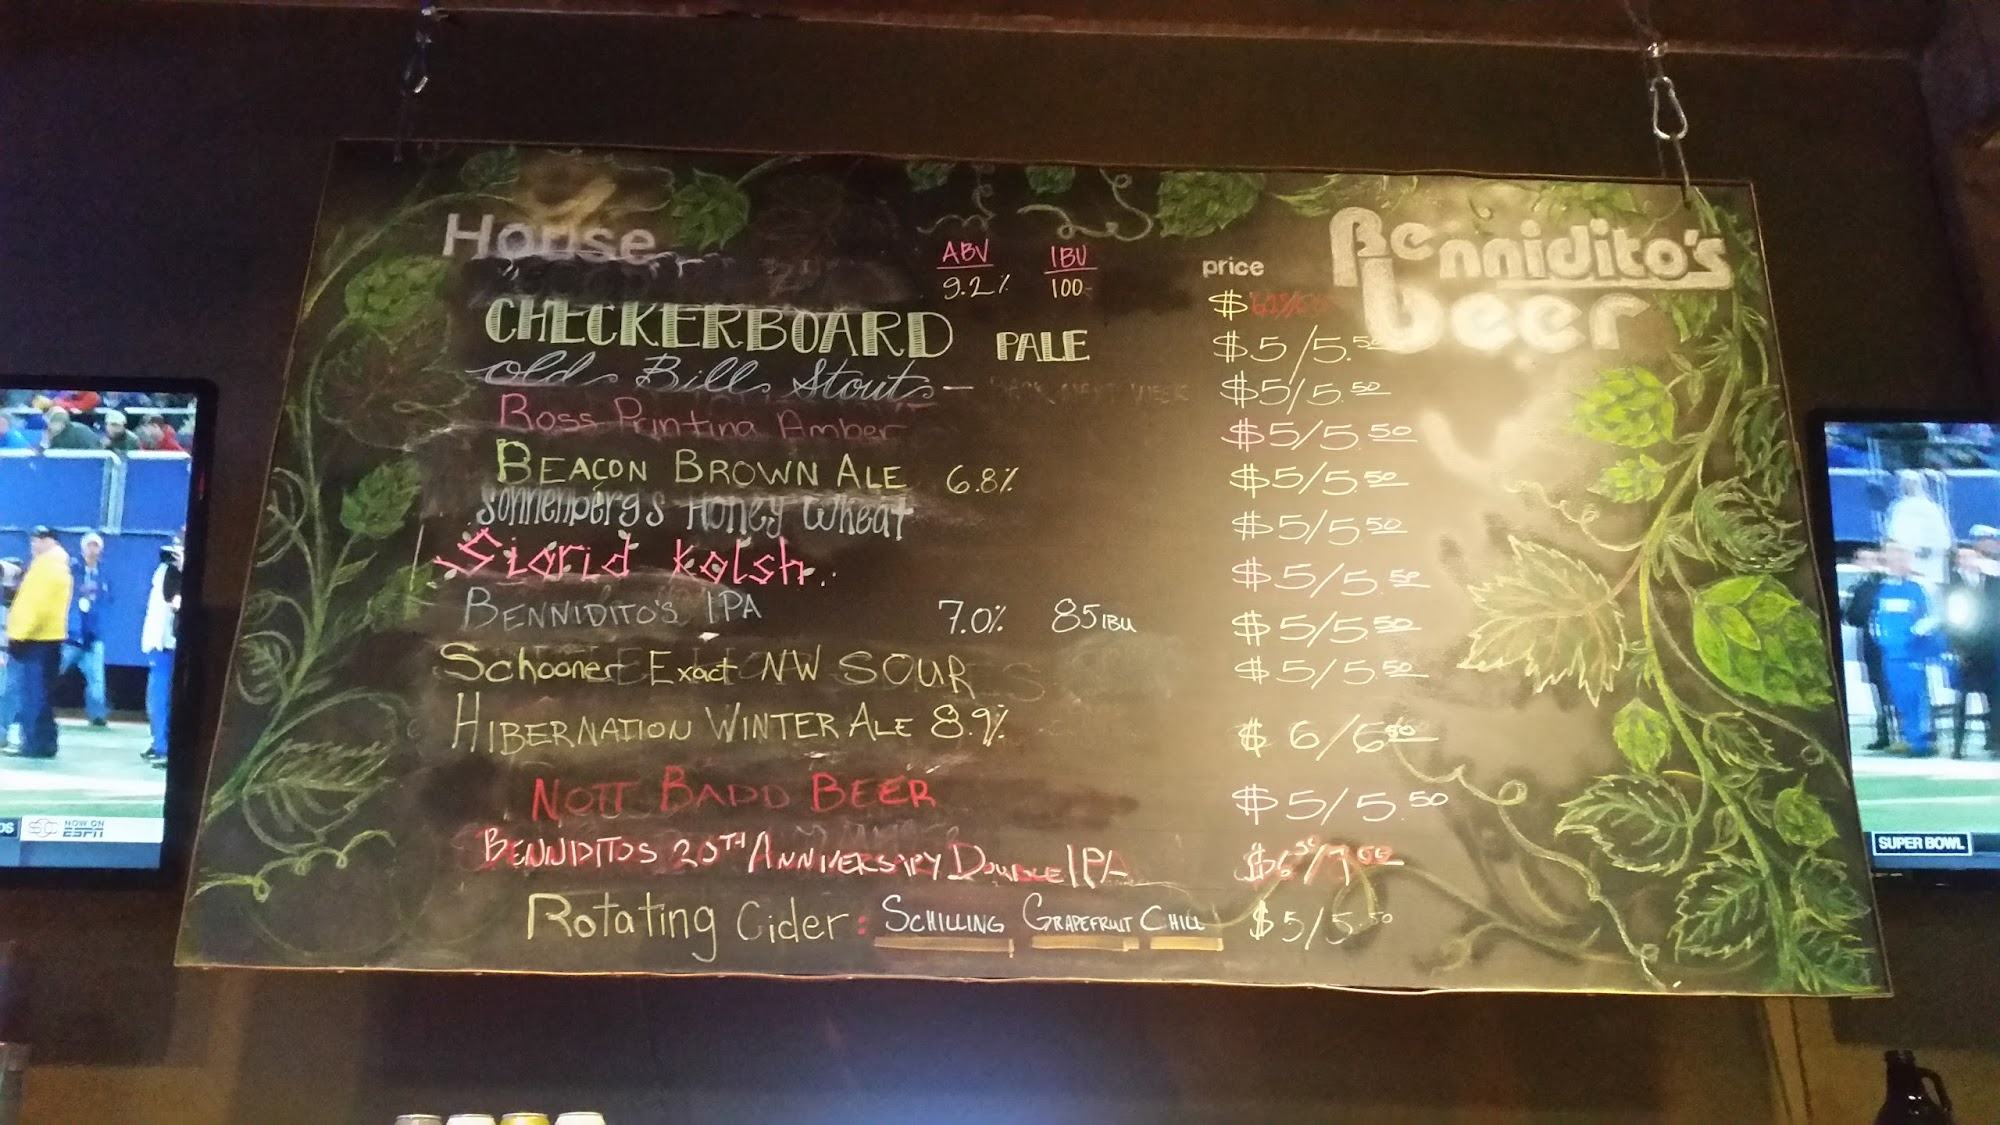 House
Bennidito's
beer
ABV IBU
price
9.2% 100
$
CHECKERBOARD PALE $5/5.50
Old Bill Stout - $5/5.50
Ross Printing Amber $5/5.50
BEACON BROWN ALE 6.8% $5/5.50
Sonnenberg's Honey Wheat $5/5.50
Sigrid Kolsh $5/5.50
BENNIDITO'S IPA 7.0% 85 IBU $5/5.50
Schooner Exact NW SOUR $5/5.50
HIBERNATION WINTER ALE 8.9% $6/6.50
NOTT BADD BEER $5/5.50
BENNIDITOS 20TH ANNIVERSARY DOUBLE IPA $6.50/7.00
Rotating Cider: SCHILLING GRAPEFRUIT CHILL $5/5.50
DS SC NOW ON ESPN
SUPER BOWL